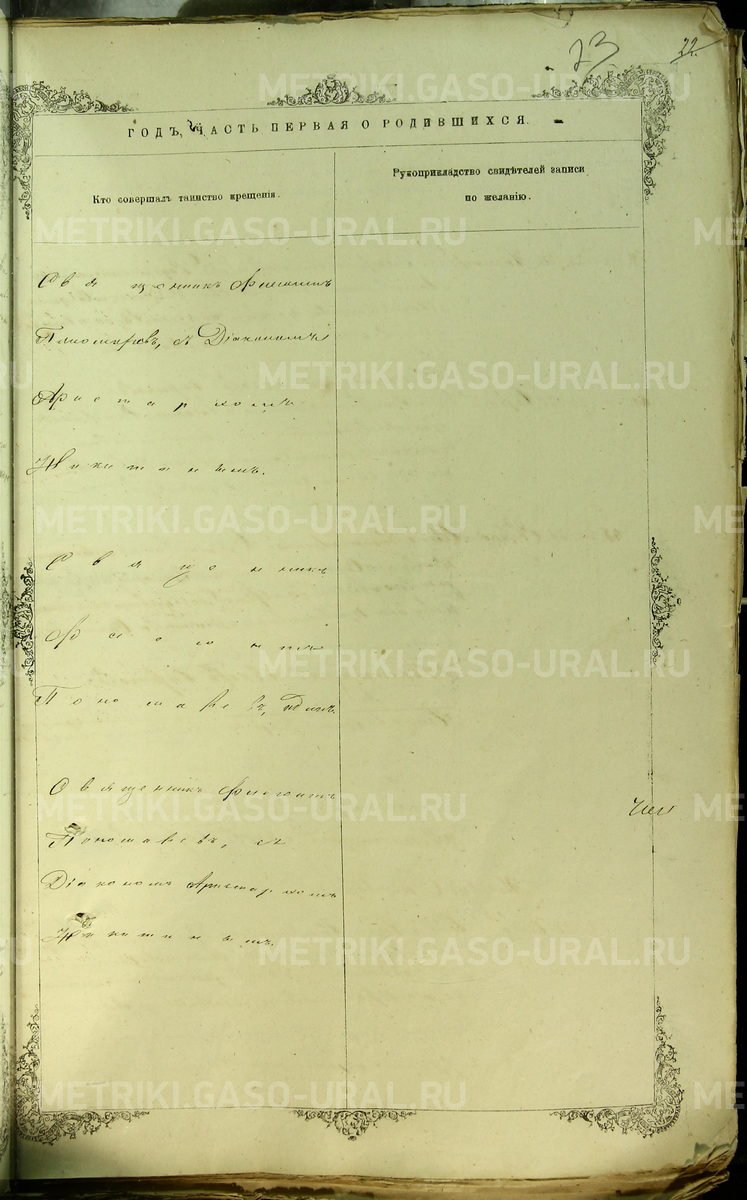 23
22.
ГОДЪ, ЧАСТЬ ПЕРВАЯ О РОДИВШИХСЯ.
Кто совершалъ таинство крещенія.
Рукоприкладство свидѣтелей записи
по желанію.
Священникъ
Пономаревъ, съ Діакономъ
Аристархомъ
Никитинымъ.
Священникъ
Пономаревъ, одинъ.
Священникъ
Пономаревъ, съ
Діакономъ Аристархомъ
Никитинымъ.
METRIKI.GASO-URAL.RU